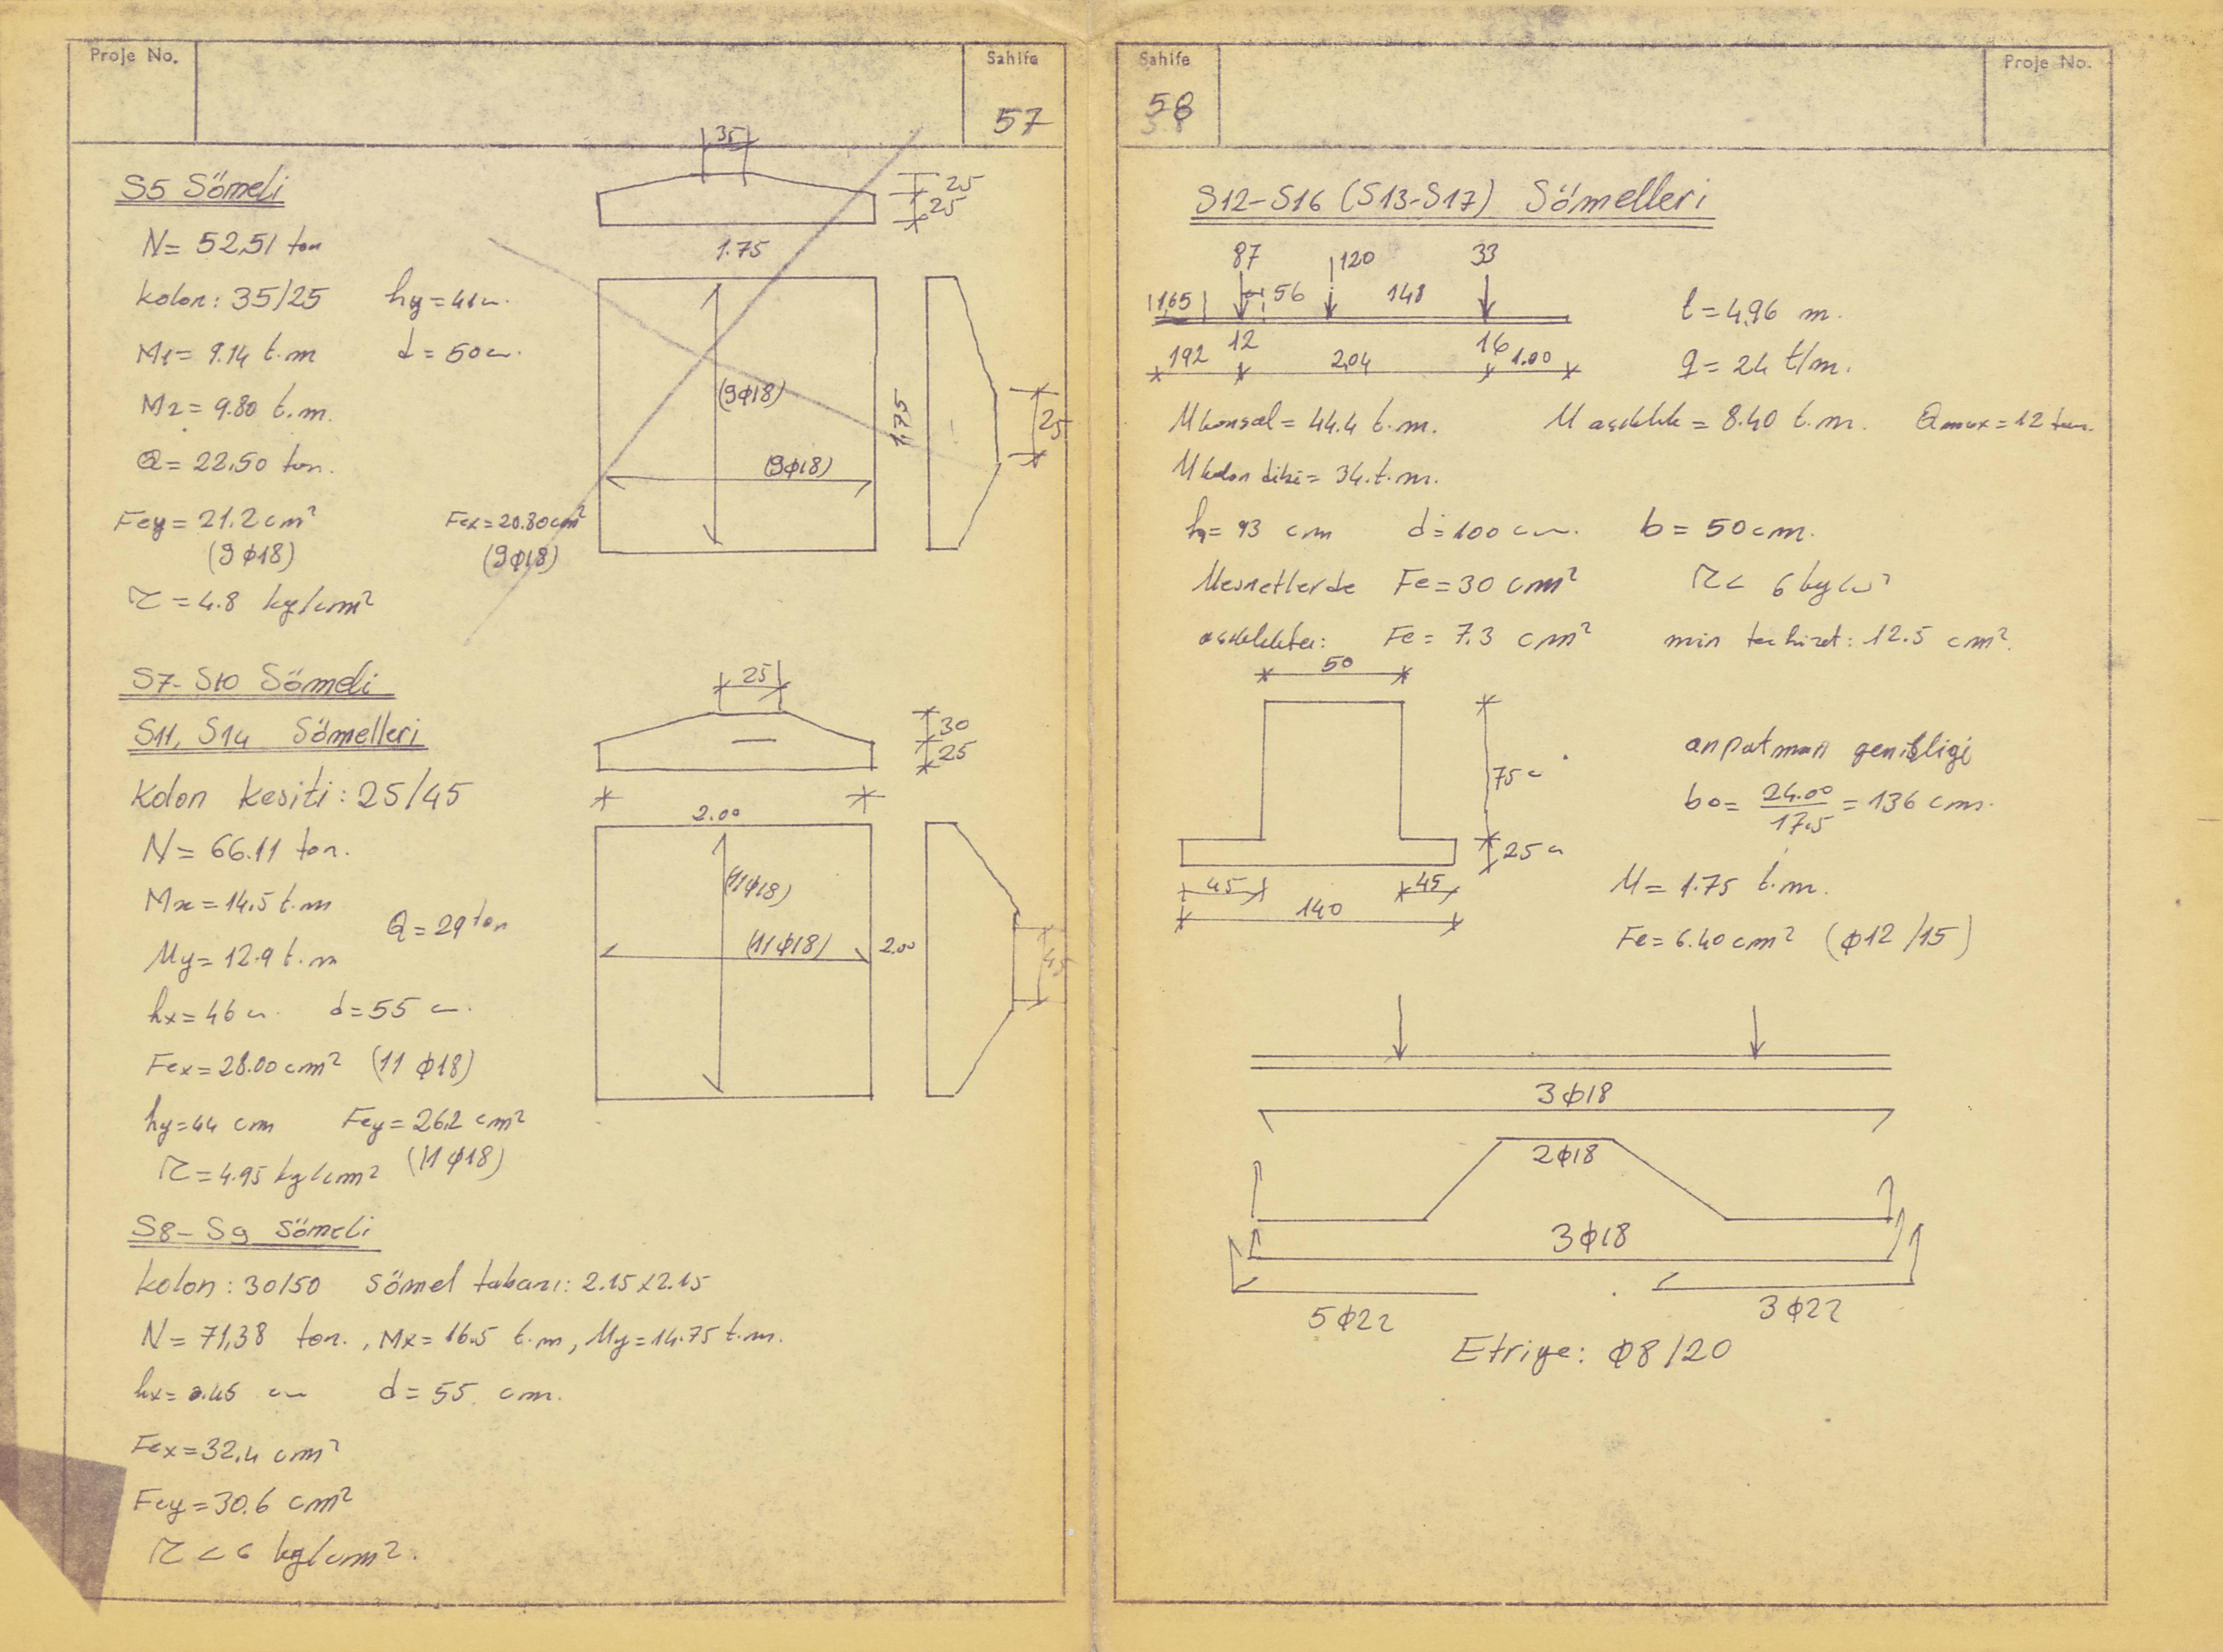 Proje No.
Sahife
57
S5 Sömeli
N= 52,51 ton
kolon: 35/25 hy=41cm.
M1= 9.14 t.m d = 50cm.
M2= 9.80 t.m.
Q= 22,50 ton.
Fey= 21.2cm² Fex=20.80cm²
(9Φ18) (9Φ18)
τ = 4.8 kg/cm²
35
25
25
1.75
(9Φ18)
(9Φ18)
1,75
25
S7-S10 Sömeli
S11, S14 Sömelleri
Kolon kesiti: 25/45
N= 66.11 ton.
Mx=14,5 t.m
Q= 29 ton
My= 12.9 t.m
hx=46 cm. d=55 cm.
Fex=28.00cm² (11 Φ18)
hy=44 cm Fey= 26,2 cm²
τ=4.95 kg/cm² (11 Φ18)
25
30
25
2.00
(11Φ18)
(11Φ18)
2.00
45
S8-S9 Sömeli
kolon: 30/50 sömel tabanı: 2.15x2.15
N= 71,38 ton., Mx= 16.5 t.m, My=14.75 t.m.
hx= 0.45 cm d= 55 cm.
Fex=32.4 cm²
Fey=30.6 cm²
τ < 6 kg/cm².
Sahife
58
Proje No.
S12-S16 (S13-S17) Sömelleri
87 120 33
1,65 56 148
12 16
192 2,04 1.00
l=4,96 m.
q= 24 t/m.
M konsol= 44.4 t.m. M açıklık = 8.40 t.m. Qmax=12 ton.
M kolon dibi= 34.t.m.
h= 93 cm d=100 cm. b= 50cm.
Mesnetlerde Fe=30 cm² τ< 6 kg/cm²
açıklıkta: Fe= 7.3 cm² min teçhizat: 12.5 cm².
50
75 cm
25 cm
45 45
140
anpatman genişligi
bo= 24.00/17.5 = 136 cm.
M= 1.75 t.m.
Fe=6.40cm² (Φ12/15)
3Φ18
2Φ18
3Φ18
5Φ22 3Φ22
Etriye: Φ8/20